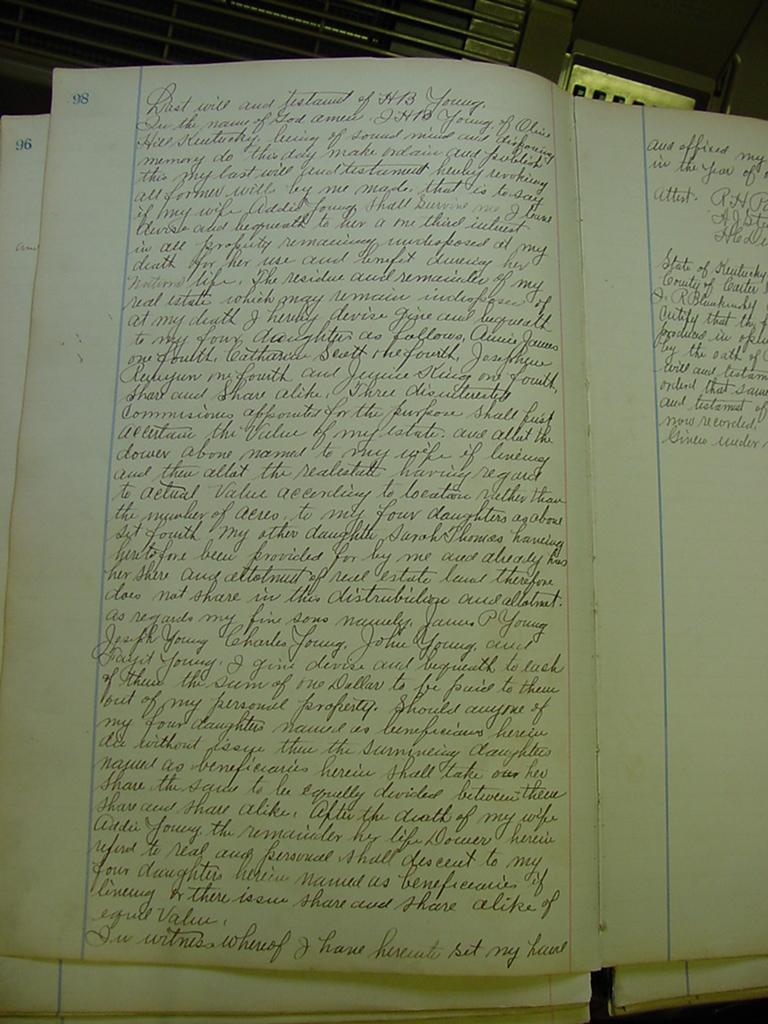 98
Last will and testament of HB Young.
In the name of God amen. I HB Young, of Olive
Hill Kentucky, being of sound mind and disposing
memory do this day make ordain and publish
this my last will and testament hereby revoking
all former wills by me made, that is to say
if my wife Addie Young shall survive me I
devise and bequeath to her a one third interest
in all property remaining undisposed at my
death for her use and benefit during her
Natural life. The residue and remainder of my
real estate which may remain undisposed of
at my death I hereby devise give and bequeath
to my four daughters as follows, Annie James
one fourth, Catharine Scott one fourth, Josephine
Runyun one fourth and Jennie King one fourth,
Share and Share alike. Three disinterested
Commisiones appointed for the purpose shall first
accertain the Value of my estate. and allot the
dower above named to my wife if lineing
and then allot the realestate having regard
to actual Value according to location rather than
the number of acres, to my four daughters as above
set fourth, my other daughter Sarah Thomas having
heretofore been provided for by me and already has
her share and allotment of real estate land therefore
does not share in this distribution and allotment.
as regards my five sons namely, James P Young
Joseph Young Charles Young, John Young, and
Young. I give devise and bequeath to each
of them the sum of one Dollar to be paid to them
out of my personal property. Should anyone of
my four daughters named as beneficiaries herein
die without issue then the surviving daughters
named as beneficiaries herein shall take over her
share the same to be equally divided between them
share and share alike. After the death of my wife
Addie Young the remainder her life Dower herein
referd to real and personal shall descent to my
four daughters herein named as beneficiaries if
lineing or there issue share and share alike of
equal Value.
In witness whereof I have hereunto set my hand
96
and
and affixed my
in the year of
Attest. R.H.
H.J.
State of Kentucky
County of Carter
J. R.
Certify that the
produced in open
by the oath of
will and testam
orderd that same
and testament of
now recorded.
Given under